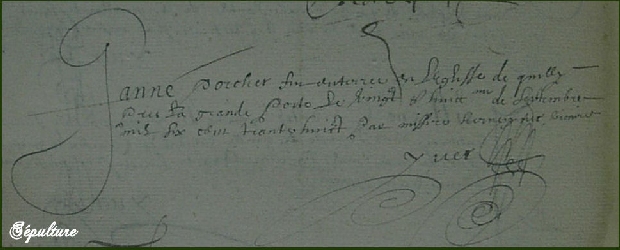 Janne Porcher fut enterree en Leglisse de quilly
pres la grande Porte Le vingt & huict me de Septembre
mil six cent trante huict par missire
yver
Sépulture